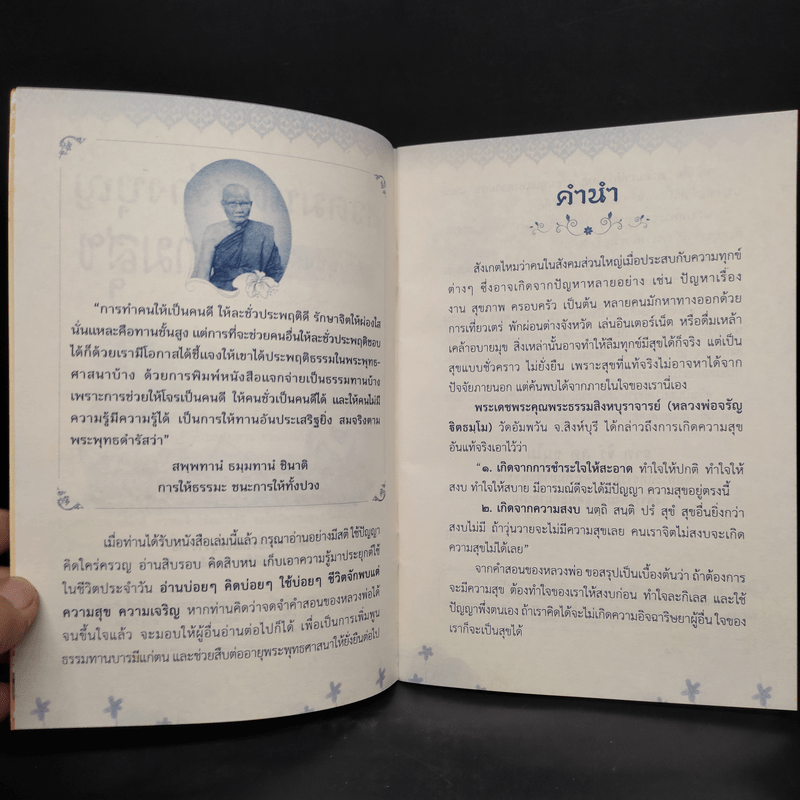 “การทำคนให้เป็นคนดี ให้ละชั่วประพฤติดี รักษาจิตให้ผ่องใส
นั่นแหละคือทานชั้นสูง แต่การที่จะช่วยคนอื่นให้ละชั่วประพฤติชอบ
ได้ก็ด้วยเรามีโอกาสได้ชี้แจงให้เขาได้ประพฤติธรรมในพระพุทธ-
ศาสนาบ้าง ด้วยการพิมพ์หนังสือแจกจ่ายเป็นธรรมทานบ้าง
เพราะการช่วยให้โจรเป็นคนดี ให้คนชั่วเป็นคนดีได้ และให้คนไม่มี
ความรู้มีความรู้ได้ เป็นการให้ทานอันประเสริฐยิ่ง สมจริงตาม
พระพุทธดำรัสว่า”
สพฺพทานํ ธมฺมทานํ ชินาติ
การให้ธรรมะ ชนะการให้ทั้งปวง
เมื่อท่านได้รับหนังสือเล่มนี้แล้ว กรุณาอ่านอย่างมีสติ ใช้ปัญญา
คิดใคร่ครวญ อ่านสิบรอบ คิดสิบหน เก็บเอาความรู้มาประยุกต์ใช้
ในชีวิตประจำวัน อ่านบ่อยๆ คิดบ่อยๆ ใช้บ่อยๆ ชีวิตจักพบแต่
ความสุข ความเจริญ หากท่านคิดว่าจดจำคำสอนของหลวงพ่อได้
จนขึ้นใจแล้ว จะมอบให้ผู้อื่นอ่านต่อไปก็ได้ เพื่อเป็นการเพิ่มพูน
ธรรมทานบารมีแก่ตน และช่วยสืบต่ออายุพระพุทธศาสนาให้ยั่งยืนต่อไป
คำนำ
สังเกตไหมว่าคนในสังคมส่วนใหญ่เมื่อประสบกับความทุกข์
ต่างๆ ซึ่งอาจเกิดจากปัญหาหลายอย่าง เช่น ปัญหาเรื่อง
งาน สุขภาพ ครอบครัว เป็นต้น หลายคนมักหาทางออกด้วย
การเที่ยวเตร่ พักผ่อนต่างจังหวัด เล่นอินเตอร์เน็ต หรือดื่มเหล้า
เคล้าอบายมุข สิ่งเหล่านั้นอาจทำให้ลืมทุกข์มีสุขได้ก็จริง แต่เป็น
สุขแบบชั่วคราว ไม่ยั่งยืน เพราะสุขที่แท้จริงไม่อาจหาได้จาก
ปัจจัยภายนอก แต่ค้นพบได้จากภายในใจของเรานี่เอง
พระเดชพระคุณพระธรรมสิงหบุราจารย์ (หลวงพ่อจรัญ
ฐิตธมฺโม) วัดอัมพวัน จ.สิงห์บุรี ได้กล่าวถึงการเกิดความสุข
อันแท้จริงเอาไว้ว่า
“๑. เกิดจากการชำระใจให้สะอาด ทำใจให้ปกติ ทำใจให้
สงบ ทำใจให้สบาย มีอารมณ์ดีจะได้มีปัญญา ความสุขอยู่ตรงนี้
๒. เกิดจากความสงบ นตฺถิ สนฺติ ปรํ สุขํ สุขอื่นยิ่งกว่า
สงบไม่มี ถ้าวุ่นวายจะไม่มีความสุขเลย คนเราจิตไม่สงบจะเกิด
ความสุขไม่ได้เลย”
จากคำสอนของหลวงพ่อ ขอสรุปเป็นเบื้องต้นว่า ถ้าต้องการ
จะมีความสุข ต้องทำใจของเราให้สงบก่อน ทำใจละกิเลส และใช้
ปัญญาพึ่งตนเอง ถ้าเราคิดได้จะไม่เกิดความอิจฉาริษยาผู้อื่น ใจของ
เราก็จะเป็นสุขได้